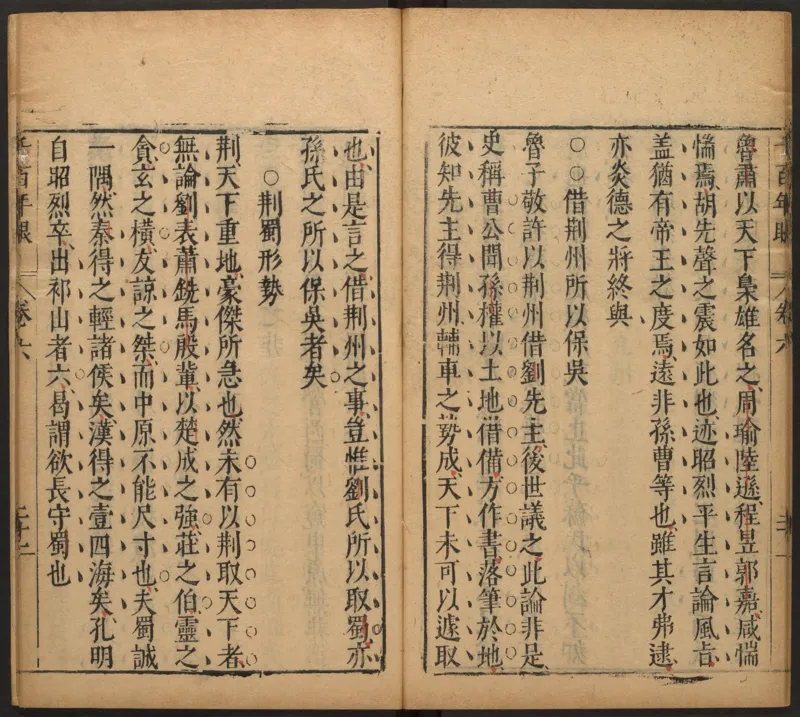 魯肅以天下梟雄名之周瑜陸遜程昱郭嘉咸惴
惴焉胡先聲之震如此也迹昭烈平生言論風旨
盖猶有帝王之度焉遠非孫曹等也雖其才弗逮
亦炎德之將終與
○○借荆州所以保吳
魯子敬許以荆州借劉先主後世議之此論非是
史稱曹公聞孫權以土地借備方作書落筆於地
彼知先主得荆州輔車之勢成天下未可以遽取
也由是言之借荆州之事豈惟劉氏所以取蜀亦
孫氏之所以保吳者矣
○荆蜀形勢
荆天下重地豪傑所急也然未有以荆取天下者
無論劉表蕭銑馬殷軰以楚成之強莊之伯靈之
貪玄之橫友諒之桀而中原不能尺寸也夫蜀誠
一隅然秦得之輕諸侯矣漢得之壹四海矣孔明
自昭烈卒出祁山者六曷謂欲長守蜀也
千百年眼
卷六